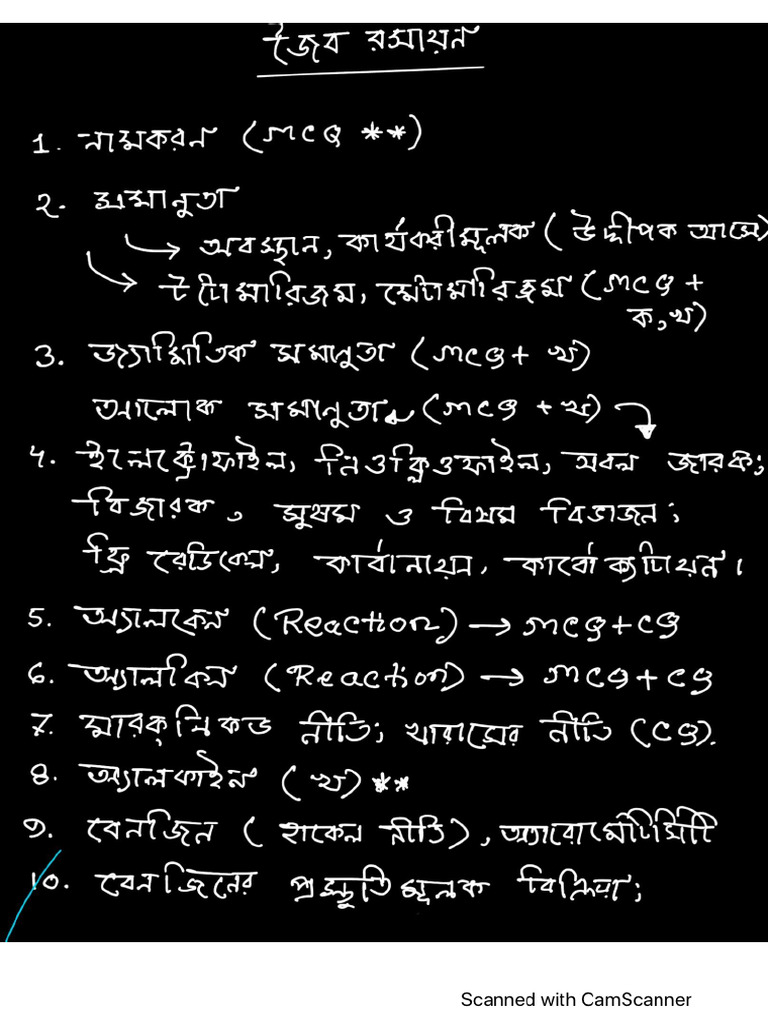 জৈব রসায়ন
1. নামকরন (MCQ **)
2. সমানুতা
→ অবস্থান, কার্যকরীমূলক (উদ্দীপক আসে)
→ টটোমারিজম, মেটামারিজম (MCQ +
ক,খ)
3. জ্যামিতিক সমানুতা (MCQ + খ)
আলোক সমানুতা (MCQ + খ)
4. ইলেক্ট্রোফাইল, নিওক্লিওফাইল, সবল জারক;
বিজারক, সুষম ও বিষম বিভাজন;
ফ্রি রেডিকেল, কার্বানায়ন, কার্বোক্যাটায়ন।
5. অ্যালকেন (Reaction) → MCQ+CQ
6. অ্যালকিন (Reaction) → MCQ+CQ
7. মারকনিকভ নীতি; খারাসের নীতি (CQ).
8. অ্যালকাইন (খ) **
9. বেনজিন (হাকেল নীতি), অ্যারোমেটিসিটি
10. বেনজিনের প্রস্তুতিমূলক বিক্রিয়া;
Scanned with CamScanner